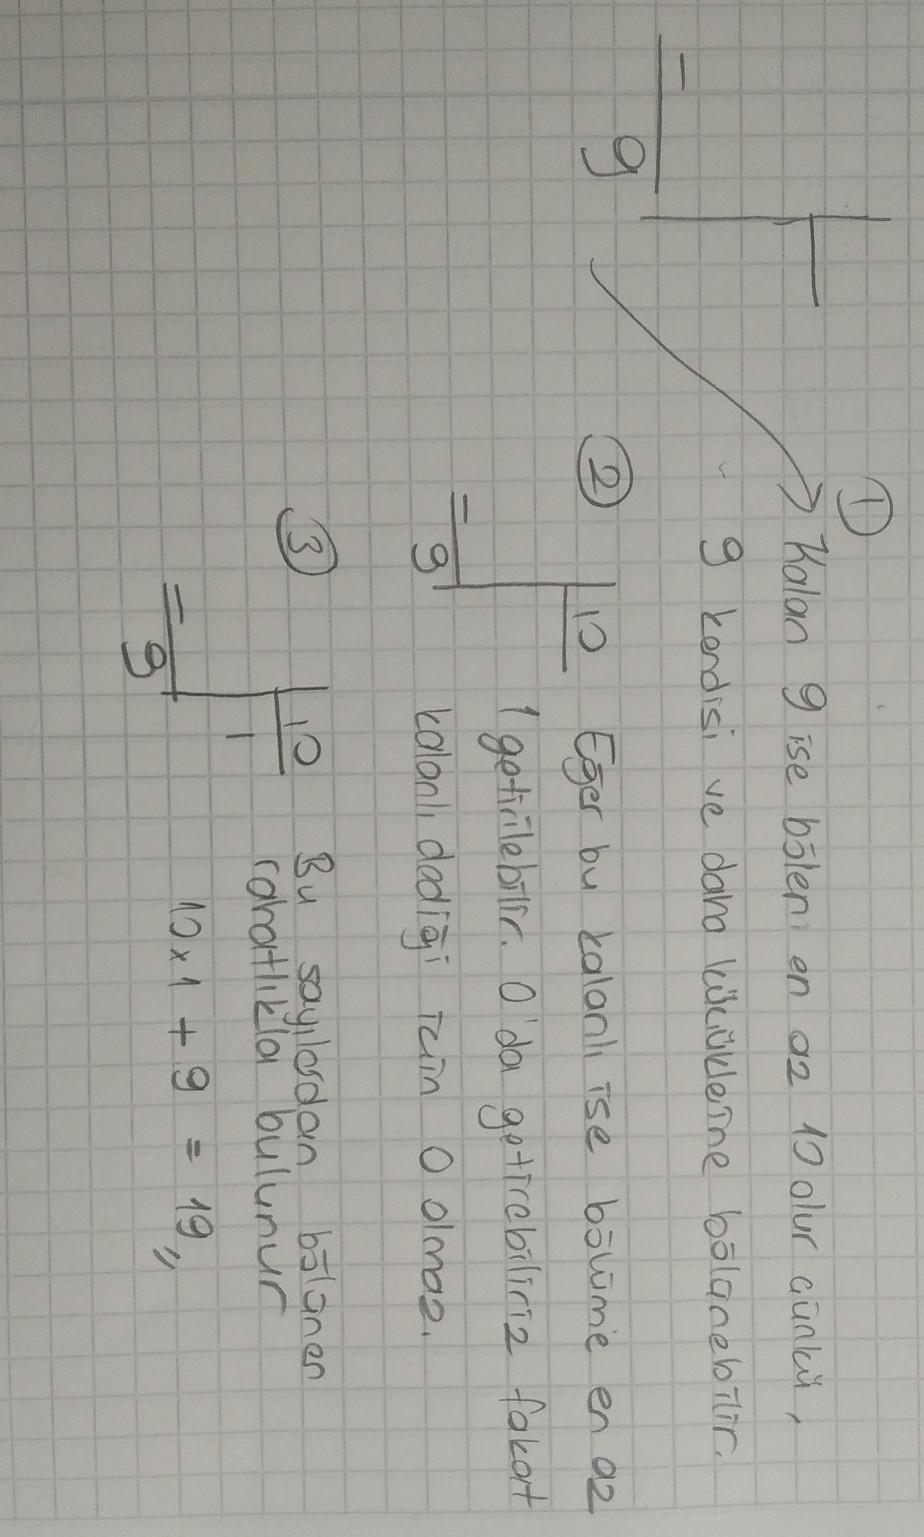 9
①
Kalan 9 ise bölen en az 10 olur çünkü,
9 kendisi ve daha küçüklerine bölünebilir.
②
10
9
Eğer bu kalanlı ise bölüme en az
1 getirilebilir. 0'da getirebiliriz fakat
kalanlı dediği için 0 olmaz.
③
10
1
9
Bu sayılardan bölünen
rahatlıkla bulunur
10x1 + 9 = 19,,